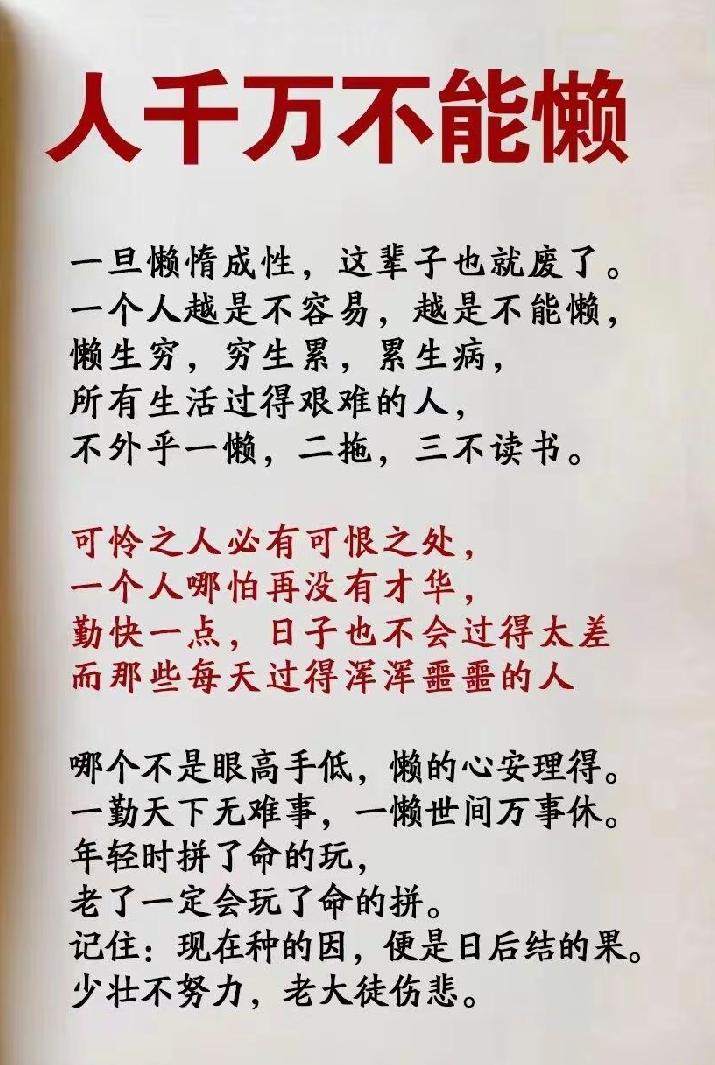 人千万不能懒
一旦懒惰成性，这辈子也就废了。
一个人越是不容易，越是不能懒，
懒生穷，穷生累，累生病，
所有生活过得艰难的人，
不外乎一懒，二拖，三不读书。
可怜之人必有可恨之处，
一个人哪怕再没有才华，
勤快一点，日子也不会过得太差
而那些每天过得浑浑噩噩的人
哪个不是眼高手低，懒的心安理得。
一勤天下无难事，一懒世间万事休。
年轻时拼了命的玩，
老了一定会玩了命的拼。
记住：现在种的因，便是日后结的果。
少壮不努力，老大徒伤悲。